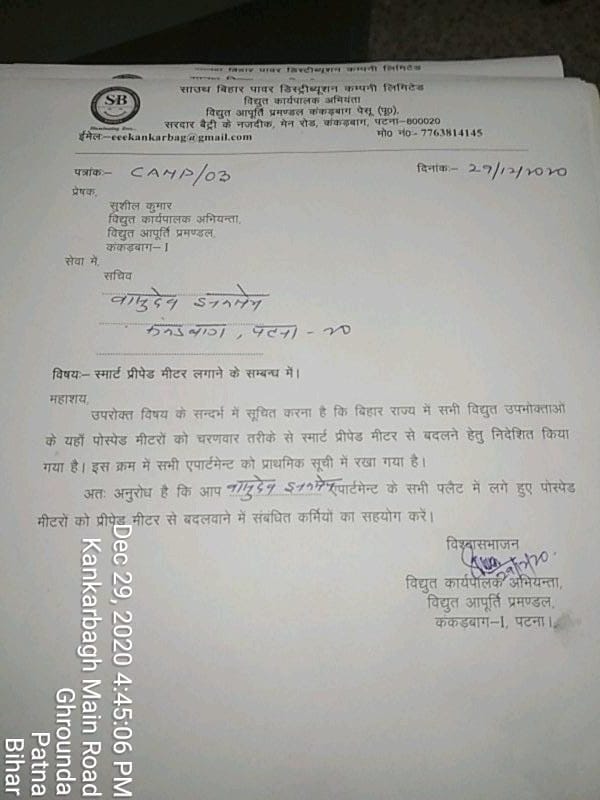 साउथ बिहार पावर डिस्ट्रीब्यूशन कम्पनी लिमिटेड
SB
साउथ बिहार पावर डिस्ट्रीब्यूशन कम्पनी लिमिटेड
विद्युत कार्यपालक अभियंता
विद्युत आपूर्ति प्रमण्डल कंकड़बाग पेसू (पू०),
सरदार बैट्री के नजदीक, मेन रोड, कंकड़बाग, पटना–800020
ईमेल:–eeekankarbag@gmail.com मो० नं०:- 7763814145
पत्रांक:– CAMP/03 दिनांक:– 29/12/2020
प्रेषक,
सुशील कुमार
विद्युत कार्यपालक अभियन्ता,
विद्युत आपूर्ति प्रमण्डल,
कंकड़बाग–I
सेवा में,
सचिव
वासुदेव
कंकड़बाग, पटना - 20
विषय:– स्मार्ट प्रीपेड मीटर लगाने के सम्बन्ध में।
महाशय,
उपरोक्त विषय के सन्दर्भ में सूचित करना है कि बिहार राज्य में सभी विद्युत उपभोक्ताओं
के यहाँ पोस्पेड मीटरों को चरणवार तरीके से स्मार्ट प्रीपेड मीटर से बदलने हेतु निदेशित किया
गया है। इस क्रम में सभी एपार्टमेन्ट को प्राथमिक सूची में रखा गया है।
अतः अनुरोध है कि आप वासुदेव एपार्टमेन्ट के सभी फ्लैट में लगे हुए पोस्पेड
मीटरों को प्रीपेड मीटर से बदलवाने में संबंधित कर्मियों का सहयोग करें।
विश्वासभाजन
29/12/20.
विद्युत कार्यपालक अभियन्ता,
विद्युत आपूर्ति प्रमण्डल,
कंकड़बाग–I, पटना।
Dec 29, 2020 4:45:06 PM
Kankarbagh Main Road
Ghrounda
Patna
Bihar